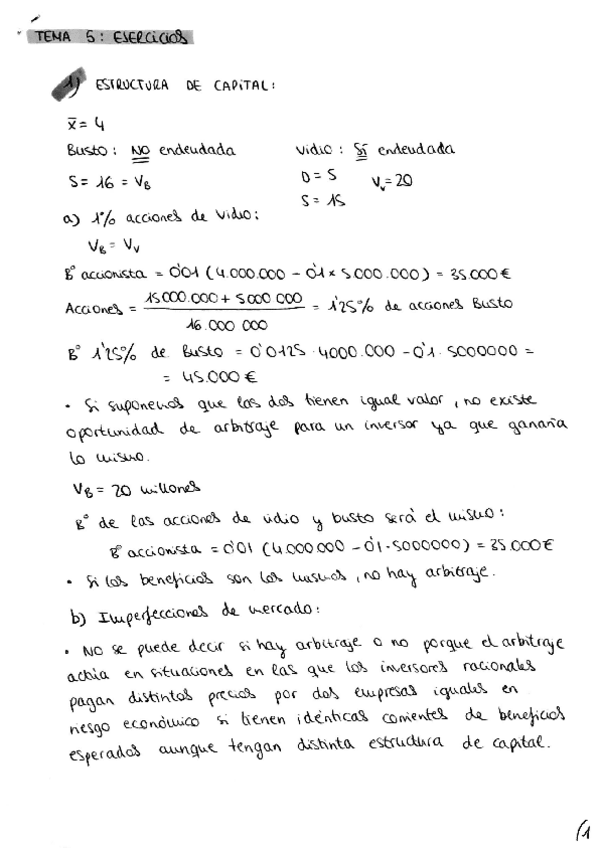 TEMA 5: EJERCICIOS
1) ESTRUCTURA DE CAPITAL:
x̄ = 4
Busto: NO endeudada
Vidio: SÍ endeudada
S = 16 = V_B
D = 5
V_v = 20
S = 15
a) 1% acciones de Vidio:
V_B = V_V
Bº accionista = 0'01 (4.000.000 - 0'1 x 5.000.000) = 35.000 €
Acciones = 15000.000 + 5000 000 / 16.000 000 = 1'25% de acciones Busto
Bº 1'25% de Busto = 0'0125 · 4000.000 - 0'1 · 5000000 =
= 45.000 €
• Si suponemos que las dos tienen igual valor, no existe
oportunidad de arbitraje para un inversor ya que ganaría
lo mismo.
V_B = 20 millones
Bº de las acciones de vidio y busto será el mismo:
Bº accionista = 0'01 (4.000.000 - 0'1 · 5000000) = 35.000 €
• Si los beneficios son los mismos, no hay arbitraje.
b) Imperfecciones de mercado:
• NO se puede decir si hay arbitraje o no porque el arbitraje
actúa en situaciones en las que los inversores racionales
pagan distintos precios por dos empresas iguales en
riesgo económico si tienen idénticas corrientes de beneficios
esperados aunque tengan distinta estructura de capital.
(1